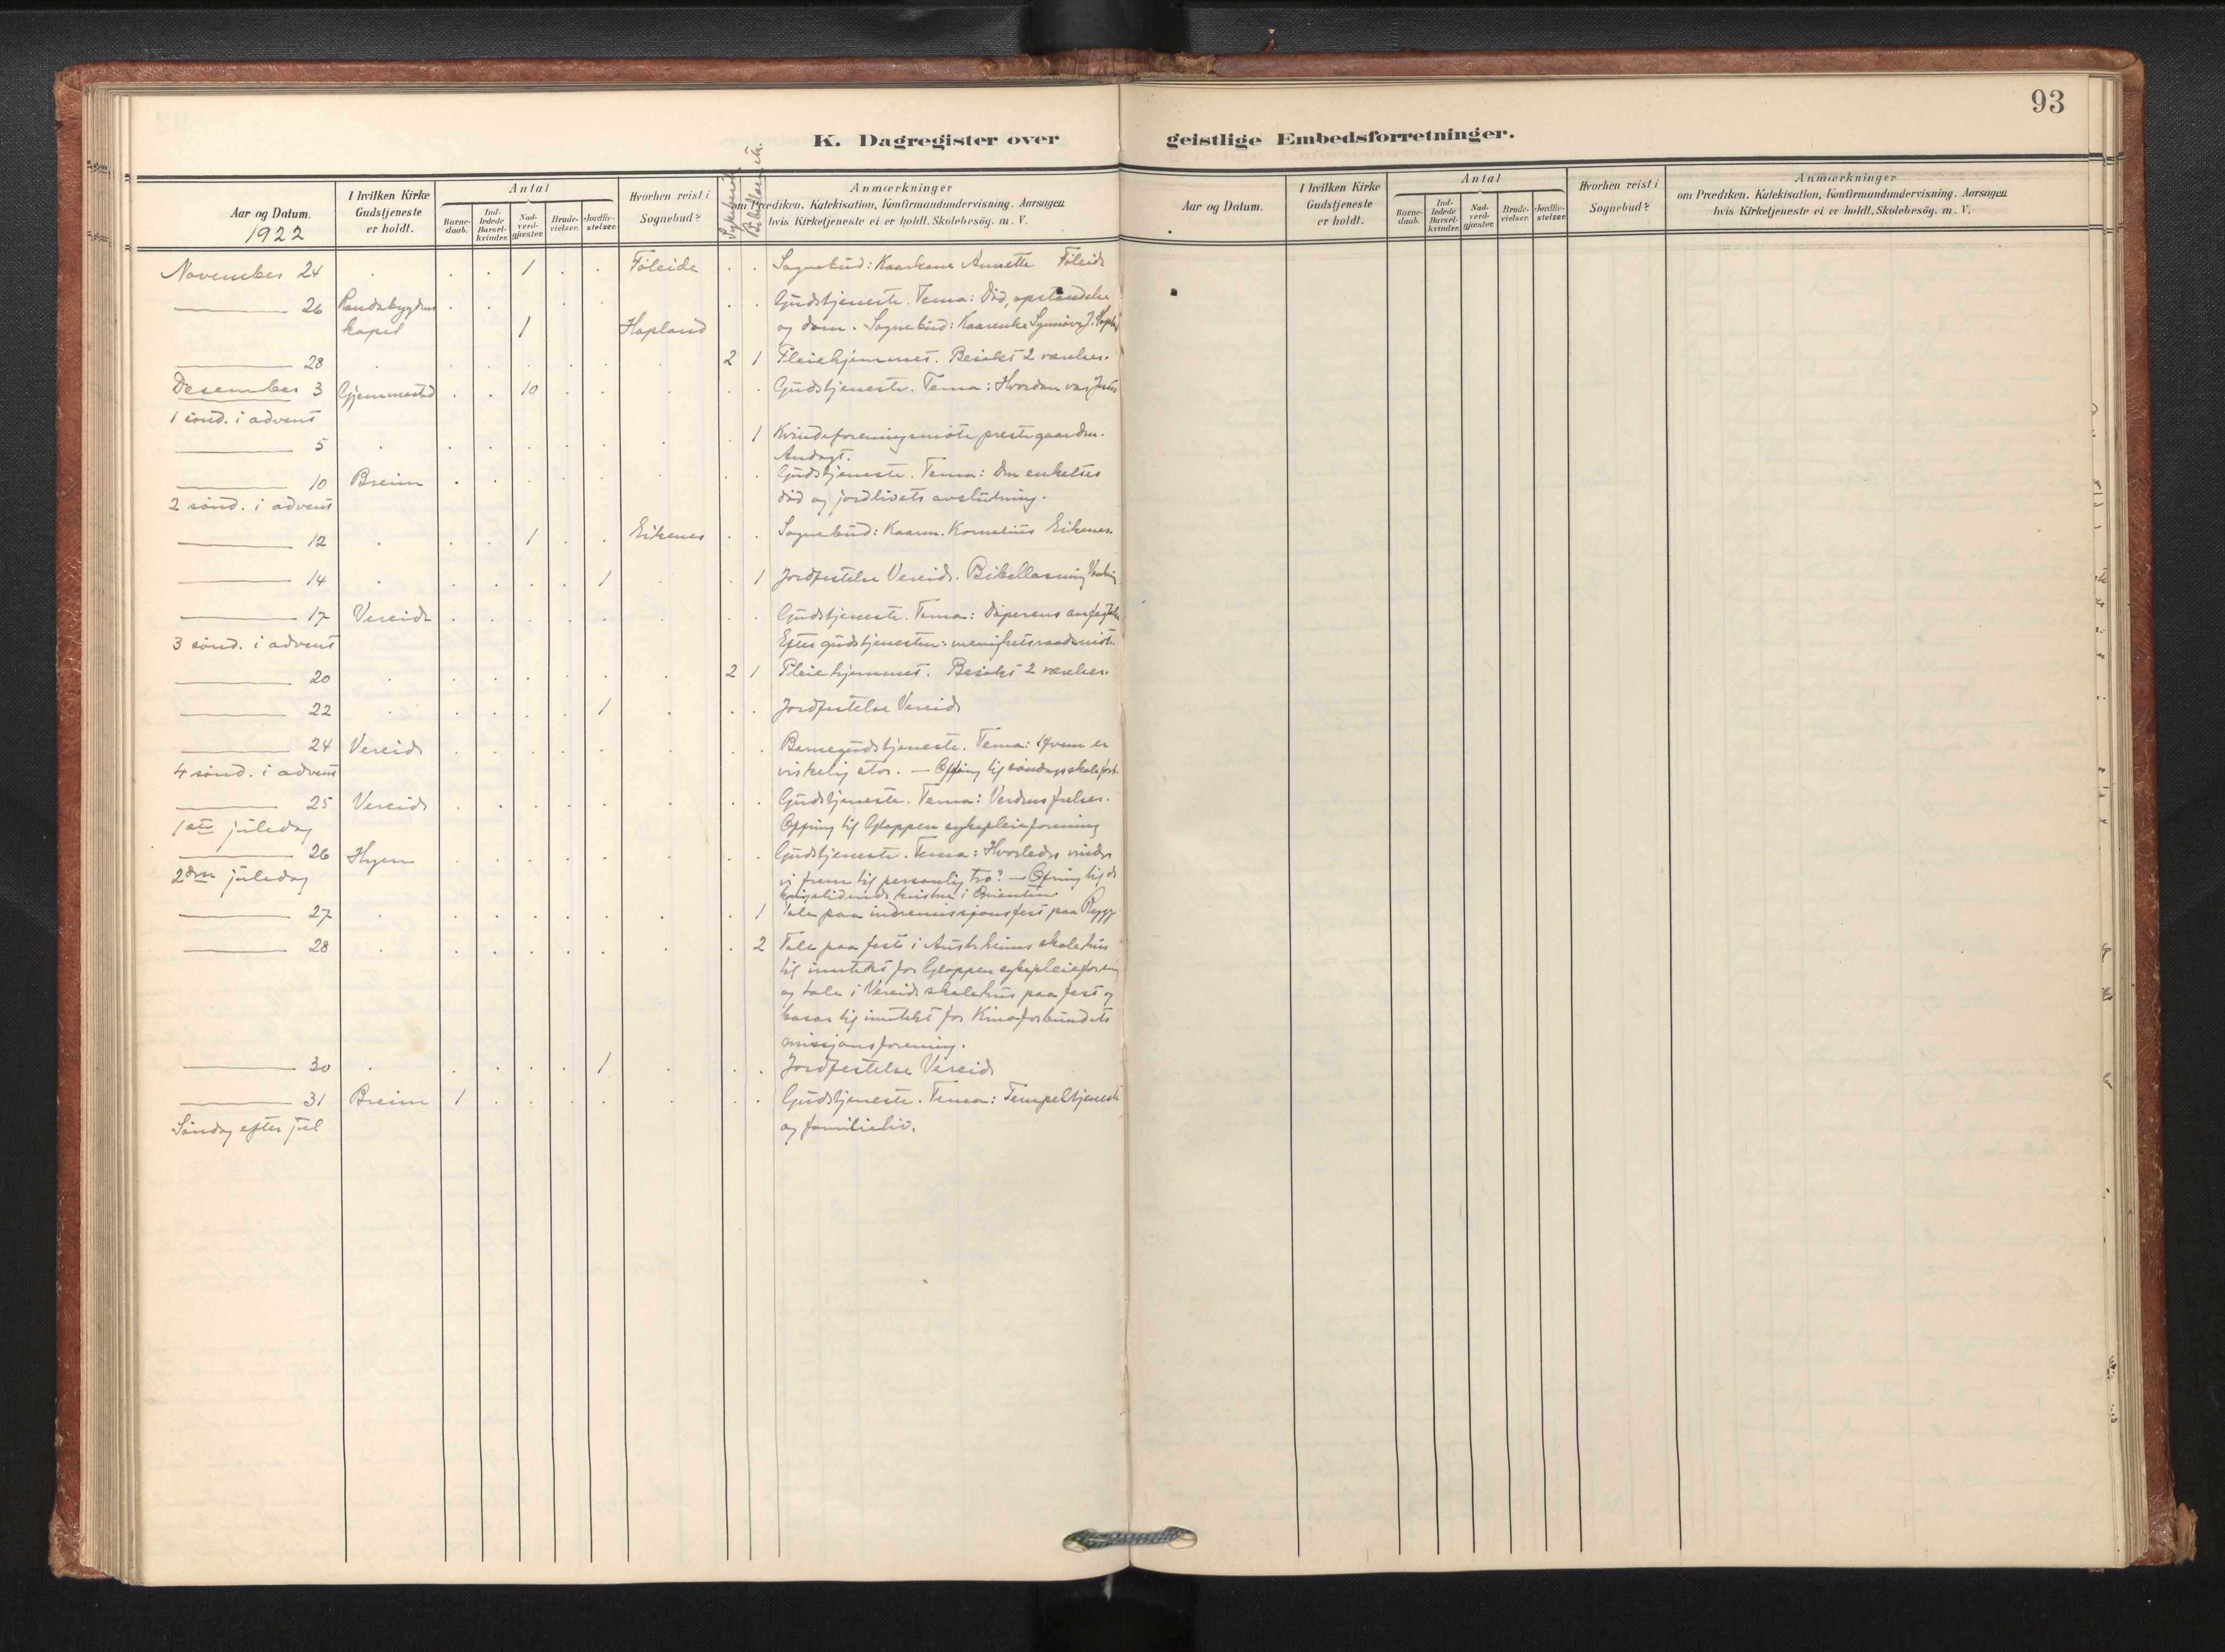 93
K. Dagregister over geistlige Embedsforretninger.
Aar og Datum. 1922
I hvilken Kirke Gudstjeneste er holdt.
Antal
Barne-daab.
Ind-ledede Barsel-kvinder.
Nad-verd-gjæster.
Brude-vielser.
Jordfæ-stelser.
Hvorhen reist i Sognebud?
Anmærkninger
om Prædiken, Katekisation, Konfirmandundervisning. Aarsagen
hvis Kirketjeneste ei er holdt. Skolebesög. m. V.
November 24 . . . 1 . . Föleide . . Sognebud: Kaarkone Annette Föleide
26 Randabygdens . . . . . . Gudstjeneste. Tema: Död, opstandelse
kapel 1 Hopland og dom. Sognebud: Kaarenke Synnöve J.
28 . . . . . . . 2 1 Pleiehjemmet. Besökt 2 værelser.
Desember 3 Gjemmestad . . 10 . . . . . Gudstjeneste. Tema: Hvordan var Jesus
1 sönd. i advent
5 . . . . . . . . 1 Kvindeforeningsmöte prestegaarden.
Andagt.
10 Breim . . . . . . . . Gudstjeneste. Tema: Den enkeltes
2 sönd. i advent död og jordlivets avslutning.
12 . . . 1 . . Eikenes . . Sognebud: Kaarm. Kornelius Eikenes.
14 . . . . . 1 . . 1 Jordfestelse Vereide. Bibellæsning
17 Vereide . . . . . . . . Gudstjeneste. Tema: Döperens
3 sönd. i advent Efter gudstjenesten: menighetsraadsmöte
20 . . . . . . . 2 1 Pleiehjemmet. Besökt 2 værelser.
22 . . . . . 1 . . . Jordfestelse Vereide
24 Vereide . . . . . . . . Barnegudstjeneste. Tema: Hvem er
4 sönd. i advent virkelig stor. — Ofring til söndagsskoleforb.
25 Vereide . . . . . . . . Gudstjeneste. Tema: Verdens frelser.
1ste juledag Ofring til Gloppen sykepleieforening
26 Hyen . . . . . . . . Gudstjeneste. Tema: Hvorledes vinder
2den juledag vi frem til personlig tro? — Ofring til de
kristne i Orienten.
27 . . . . . . . . 1 Tale paa indremissjonsfest paa Rygg
28 . . . . . . . . 2 Tale paa fest i Austrheims skolehus
til inntekt for Gloppen sykepleieforening
og tale i Vereide skolehus paa fest og
basar til inntekt for Kinaforbundets
missjonsforening.
30 . . . . . 1 . . . Jordfestelse Vereide
31 Breim 1 . . . . . . . Gudstjeneste. Tema: Tempeltjeneste
Söndag efter jul og familieliv.
Aar og Datum.
I hvilken Kirke Gudstjeneste er holdt.
Antal
Barne-daab.
Ind-ledede Barsel-kvinder.
Nad-verd-gjæster.
Brude-vielser.
Jordfæ-stelser.
Hvorhen reist i Sognebud?
Anmærkninger
om Prædiken. Katekisation, Konfirmandundervisning. Aarsagen
hvis Kirketjeneste ei er holdt. Skolebesög. m. V.